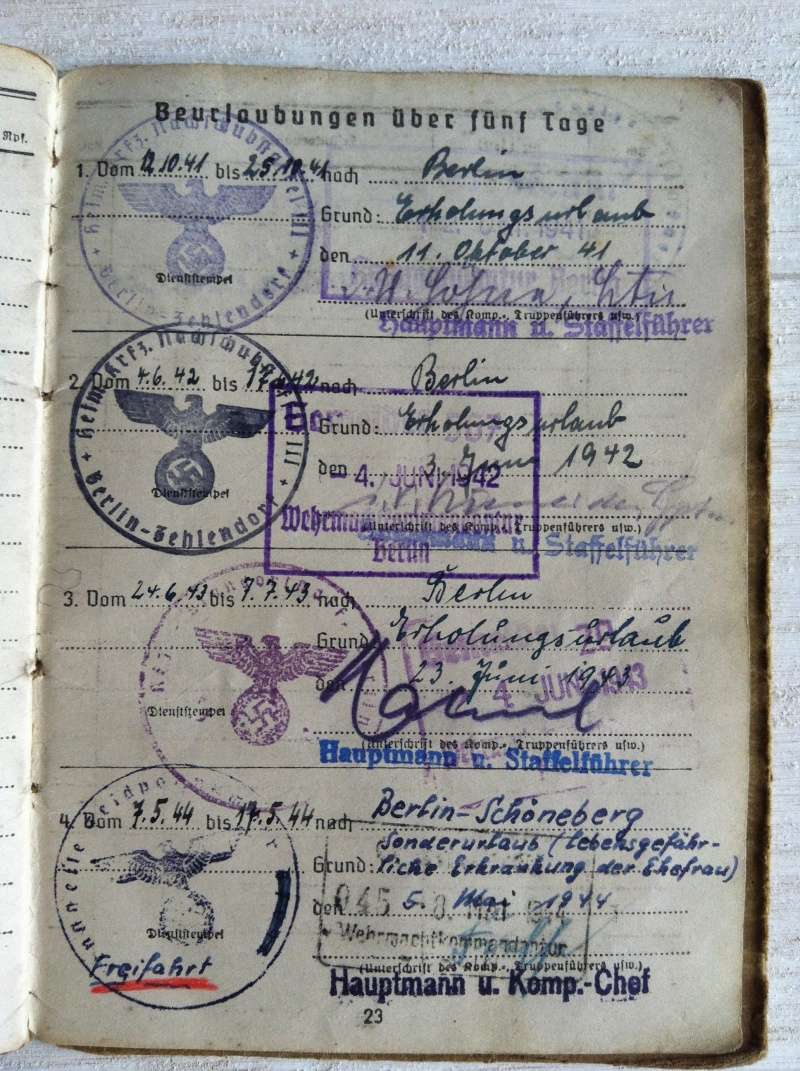 Beurlaubungen über fünf Tage
1. Vom 12.10.41 bis 25.10.41 nach Berlin
Grund: Erholungsurlaub
den 11. Oktober 41
Dienststempel
(Unterschrift des Komp.-, Truppenführers usw.)
Hauptmann u. Staffelführer
Heim. Krfz. Nachschubstaffel III
Berlin-Zehlendorf
2. Vom 4.6.42 bis 17.6.42 nach Berlin
Grund: Erholungsurlaub
den 3. Juni 1942
-4. JUNI 1942
Dienststempel
(Unterschrift des Komp.-, Truppenführers usw.)
Hauptmann u. Staffelführer
Heim. Krfz. Nachschubstaffel III
Berlin-Zehlendorf
Wehrmachtkommandantur
Berlin
3. Vom 24.6.43 bis 7.7.43 nach Berlin
Grund: Erholungsurlaub
den 23. Juni 1943
4. JUNI 1943
Dienststempel
(Unterschrift des Komp.-, Truppenführers usw.)
Hauptmann u. Staffelführer
4. Vom 7.5.44 bis 17.5.44 nach Berlin-Schöneberg
Sonderurlaub (Lebensgefähr-
Grund: liche Erkrankung der Ehefrau)
den 5. Mai 1944
045 8. MAI 1944
Wehrmachtkommandantur
Dienststempel
Freifahrt
(Unterschrift des Komp.-, Truppenführers usw.)
Hauptmann u. Komp.-Chef
23